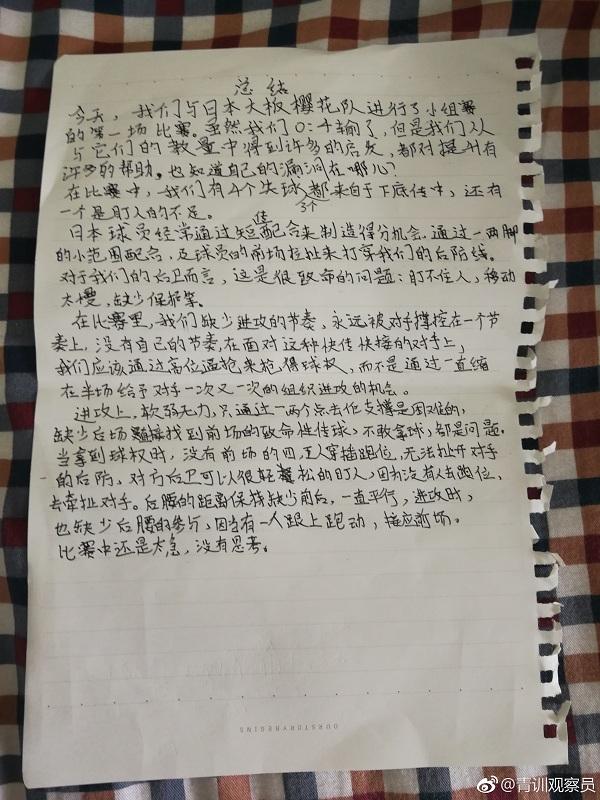 总结
今天，我们与日本大板樱花队进行了小组赛
的第一场比赛。虽然我们0:4输了，但是我们从
与它们的数量中得到许多的启发，都对提升有
许多的帮助。也知道自己的漏洞在哪儿？
在比赛中，我们有4个失球都来自于下底传中，还有
3个
一个是盯人的不足。
日本球员经常通过短传配合来制造得分机会。通过一两脚
的小范围配合，及球员的前场拉扯来打穿我们的后防线。
对于我们的后卫而言，这是很致命的问题：盯不住人，移动
太慢，缺少保护等。
在比赛里，我们缺少进攻的节奏，永远被对手掌控在一个节
奏上，没有自己的节奏，在面对这种快传快接的对手上，
我们应该通过高位逼抢来抢得球权，而不是通过一直缩
在半场给予对手一次又一次的组织进攻的机会。
进攻上，软弱无力，只通过一两个点去作支撑是困难的，
缺少后场直接找到前场的致命性传球，不敢拿球，都是问题。
当拿到球权时，没有前场的四、五人穿插跑位，无法扯开对手
的后防，对方后卫可以很轻松的盯人，因为没有人去跑位，
去牵扯对手。后腰的距离保持缺少前后，一直平行，进攻时，
也缺少后腰的参与，因当有一人跟上跑动，接应前场。
比赛中还是太急，没有思考。
OURSTORYBEGINS
@青训观察员